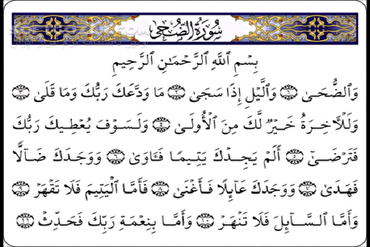 سُورَةُ الضُّحَىٰ
بِسْمِ ٱللَّهِ ٱلرَّحْمَٰنِ ٱلرَّحِيمِ
وَٱلضُّحَىٰ ۝١ وَٱلَّيْلِ إِذَا سَجَىٰ ۝٢ مَا وَدَّعَكَ رَبُّكَ وَمَا قَلَىٰ ۝٣
وَلَلْـَٔاخِرَةُ خَيْرٌ لَّكَ مِنَ ٱلْأُولَىٰ ۝٤ وَلَسَوْفَ يُعْطِيكَ رَبُّكَ
فَتَرْضَىٰٓ ۝٥ أَلَمْ يَجِدْكَ يَتِيمًا فَـَٔاوَىٰ ۝٦ وَوَجَدَكَ ضَآلًّا
فَهَدَىٰ ۝٧ وَوَجَدَكَ عَآئِلًا فَأَغْنَىٰ ۝٨ فَأَمَّا ٱلْيَتِيمَ فَلَا تَقْهَرْ ۝٩
وَأَمَّا ٱلسَّآئِلَ فَلَا تَنْهَرْ ۝١٠ وَأَمَّا بِنِعْمَةِ رَبِّكَ فَحَدِّثْ ۝١١